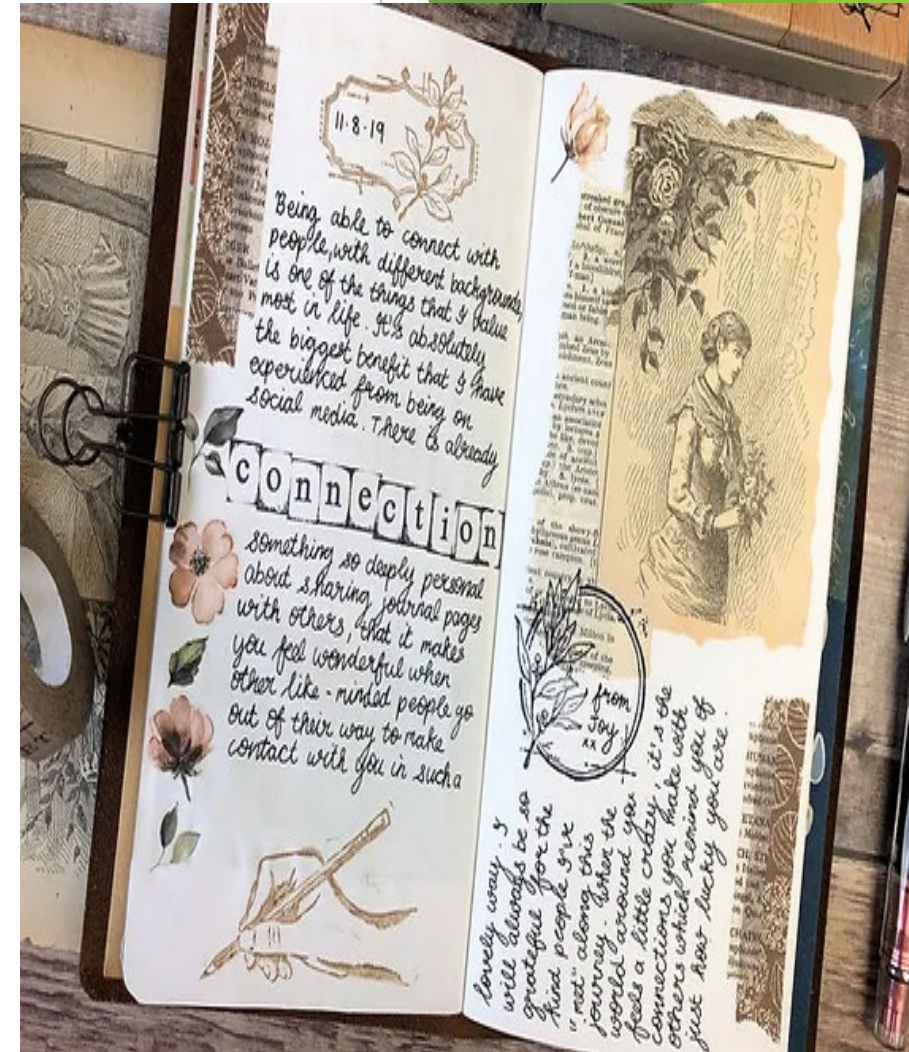 11.8.19
Being able to connect with
people, with different backgrounds,
is one of the things that I value
most in life. It's absolutely
the biggest benefit that I have
experienced from being on
social media. There is already
connection
something so deeply personal
about sharing journal pages
with others, that it makes
you feel wonderful when
other like-minded people go
out of their way to make
contact with you in such a
from
Joy
xx
lovely way. I
will always be so
grateful for the
kind people I've
"met" along this
journey. When the
world around you
feels a little crazy, it's the
connections you make with
others which remind you of
just how lucky you are.